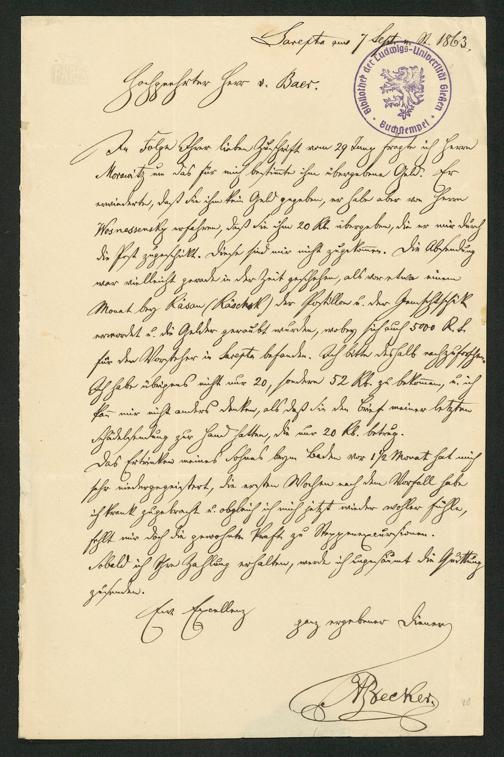 Sarepta am 7 Sept. a. St. 1863.
Bibliothek der Ludwigs-Universität Gießen
Buchstempel
Hochgeehrter Herr v. Baer.
In Folge Ihrer lieben Zuschrift vom 29 Juny fragte ich Herrn
Morawitz um das für mich bestimmte ihm übergebene Geld. Er
erwiederte, daß Sie ihm kein Geld gegeben, er habe aber von Herrn
Wosnessensky erfahren, daß Sie ihm 20 Rb. übergeben, die er mir durch
die Post zugeschickt. Diese sind mir nicht zugekommen. Die Absendung
war vielleicht gerade in der Zeit geschehen, als vor etwa einem
Monat bey Räsan (Räschsk) der Postillon u. der
ermordet u. die Gelder geraubt wurden, wobey sich auch 5000 R. S.
für den Vorsteher in Sarepta befanden. Ich bitte deshalb nachzuforschen.
Ich habe übrigens nicht nur 20, sondern 52 Rb. zu bekommen, u. ich
kan mir nicht anders denken, als daß Sie den Brief meiner letzten
zur Hand hatten, die nur 20 Rb. betrug.
Das Ertrinken meines Sohnes beym Baden vor 1 1/2 Monat hat mich
sehr niedergegeistert, die ersten Wochen nach dem Vorfall habe
ich krank zugebracht u. obgleich ich mich jetzt wieder wohler fühle,
fehlt mir doch die gewohnte Kraft zu Steppenexcursionen.
Sobald ich Ihre Zahlung erhalten, werde ich ungesäumt die Quittung
zusenden.
Ew. Excellenz
ganz ergebener Diener
ABecker.